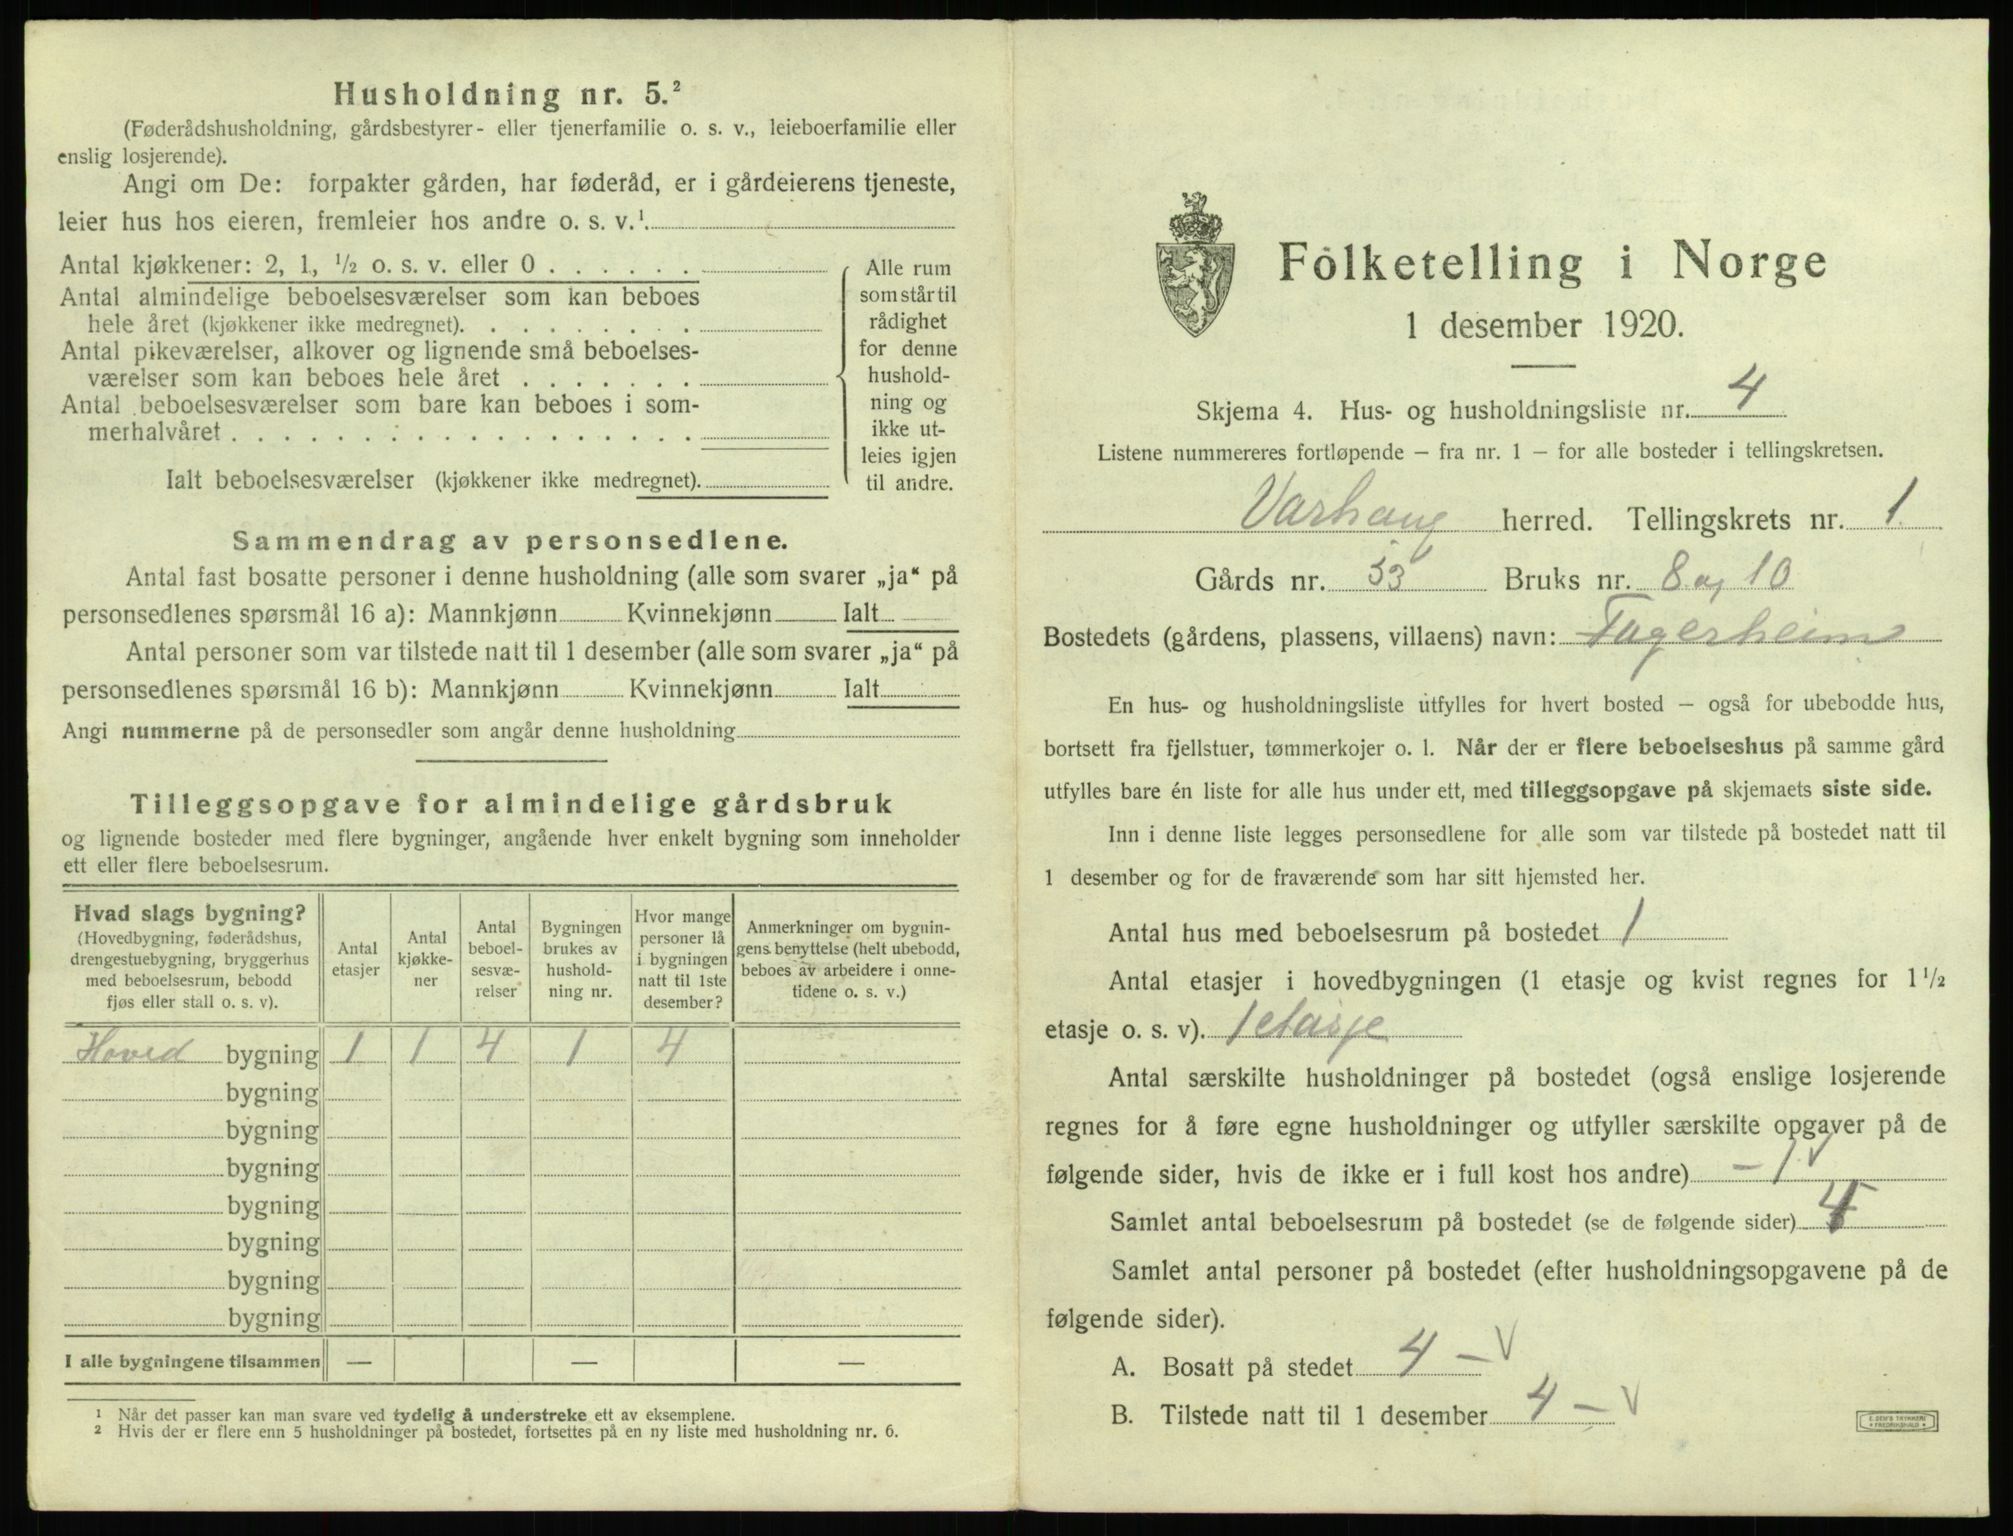 Husholdning nr. 5.²
(Føderådshusholdning, gårdsbestyrer- eller tjenerfamilie o. s. v., leieboerfamilie eller
enslig losjerende).
Angi om De: forpakter gården, har føderåd, er i gårdeierens tjeneste,
leier hus hos eieren, fremleier hos andre o. s. v.¹
Antal kjøkkener: 2, 1, ½ o. s. v. eller 0
Antal almindelige beboelsesværelser som kan beboes
hele året (kjøkkener ikke medregnet).
Antal pikeværelser, alkover og lignende små beboelses-
værelser som kan beboes hele året
Antal beboelsesværelser som bare kan beboes i som-
merhalvåret
Ialt beboelsesværelser (kjøkkener ikke medregnet).
Alle rum
som står til
rådighet
for denne
hushold-
ning og
ikke ut-
leies igjen
til andre.
Sammendrag av personsedlene.
Antal fast bosatte personer i denne husholdning (alle som svarer „ja“ på
personsedlenes spørsmål 16 a): Mannkjønn Kvinnekjønn Ialt
Antal personer som var tilstede natt til 1 desember (alle som svarer „ja“ på
personsedlenes spørsmål 16 b): Mannkjønn Kvinnekjønn Ialt
Angi nummerne på de personsedler som angår denne husholdning
Tilleggsopgave for almindelige gårdsbruk
og lignende bosteder med flere bygninger, angående hver enkelt bygning som inneholder
ett eller flere beboelsesrum.
Hvad slags bygning?
(Hovedbygning, føderådshus,
drengestuebygning, bryggerhus
med beboelsesrum, bebodd
fjøs eller stall o. s. v).
Antal
etasjer
Antal
kjøkke-
ner
Antal
beboel-
sesvæ-
relser
Bygningen
brukes av
hushold-
ning nr.
Hvor mange
personer lå
i bygningen
natt til 1ste
desember?
Anmerkninger om bygnin-
gens benyttelse (helt ubebodd,
beboes av arbeidere i onne-
tidene o. s. v.)
Hoved bygning 1 1 4 1 4
bygning
bygning
bygning
bygning
bygning
bygning
bygning
I alle bygningene tilsammen — — —
¹ Når det passer kan man svare ved tydelig å understreke ett av eksemplene.
² Hvis der er flere enn 5 husholdninger på bostedet, fortsettes på en ny liste med husholdning nr. 6.
Folketelling i Norge
1 desember 1920.
Skjema 4. Hus- og husholdningsliste nr. 4
Listene nummereres fortløpende — fra nr. 1 — for alle bosteder i tellingskretsen.
Varhaug herred. Tellingskrets nr. 1
Gårds nr. 53 Bruks nr. 8 og 10
Bostedets (gårdens, plassens, villaens) navn: Fagerheim
En hus- og husholdningsliste utfylles for hvert bosted — også for ubebodde hus,
bortsett fra fjellstuer, tømmerkojer o. l. Når der er flere beboelseshus på samme gård
utfylles bare én liste for alle hus under ett, med tilleggsopgave på skjemaets siste side.
Inn i denne liste legges personsedlene for alle som var tilstede på bostedet natt til
1 desember og for de fraværende som har sitt hjemsted her.
Antal hus med beboelsesrum på bostedet 1
Antal etasjer i hovedbygningen (1 etasje og kvist regnes for 1½
etasje o. s. v). 1 etasje
Antal særskilte husholdninger på bostedet (også enslige losjerende
regnes for å føre egne husholdninger og utfyller særskilte opgaver på de
følgende sider, hvis de ikke er i full kost hos andre) – 1 V
Samlet antal beboelsesrum på bostedet (se de følgende sider) 4
Samlet antal personer på bostedet (efter husholdningsopgavene på de
følgende sider).
A. Bosatt på stedet 4 – V
B. Tilstede natt til 1 desember 4 – V
E. SEM'S TRYKKERI
FREDRIKSHALD